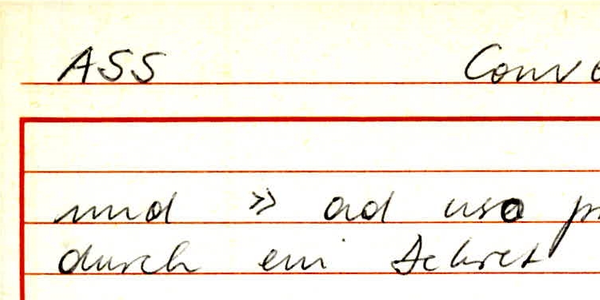 ASS Conv
und » ad uso
durch ein Dekret